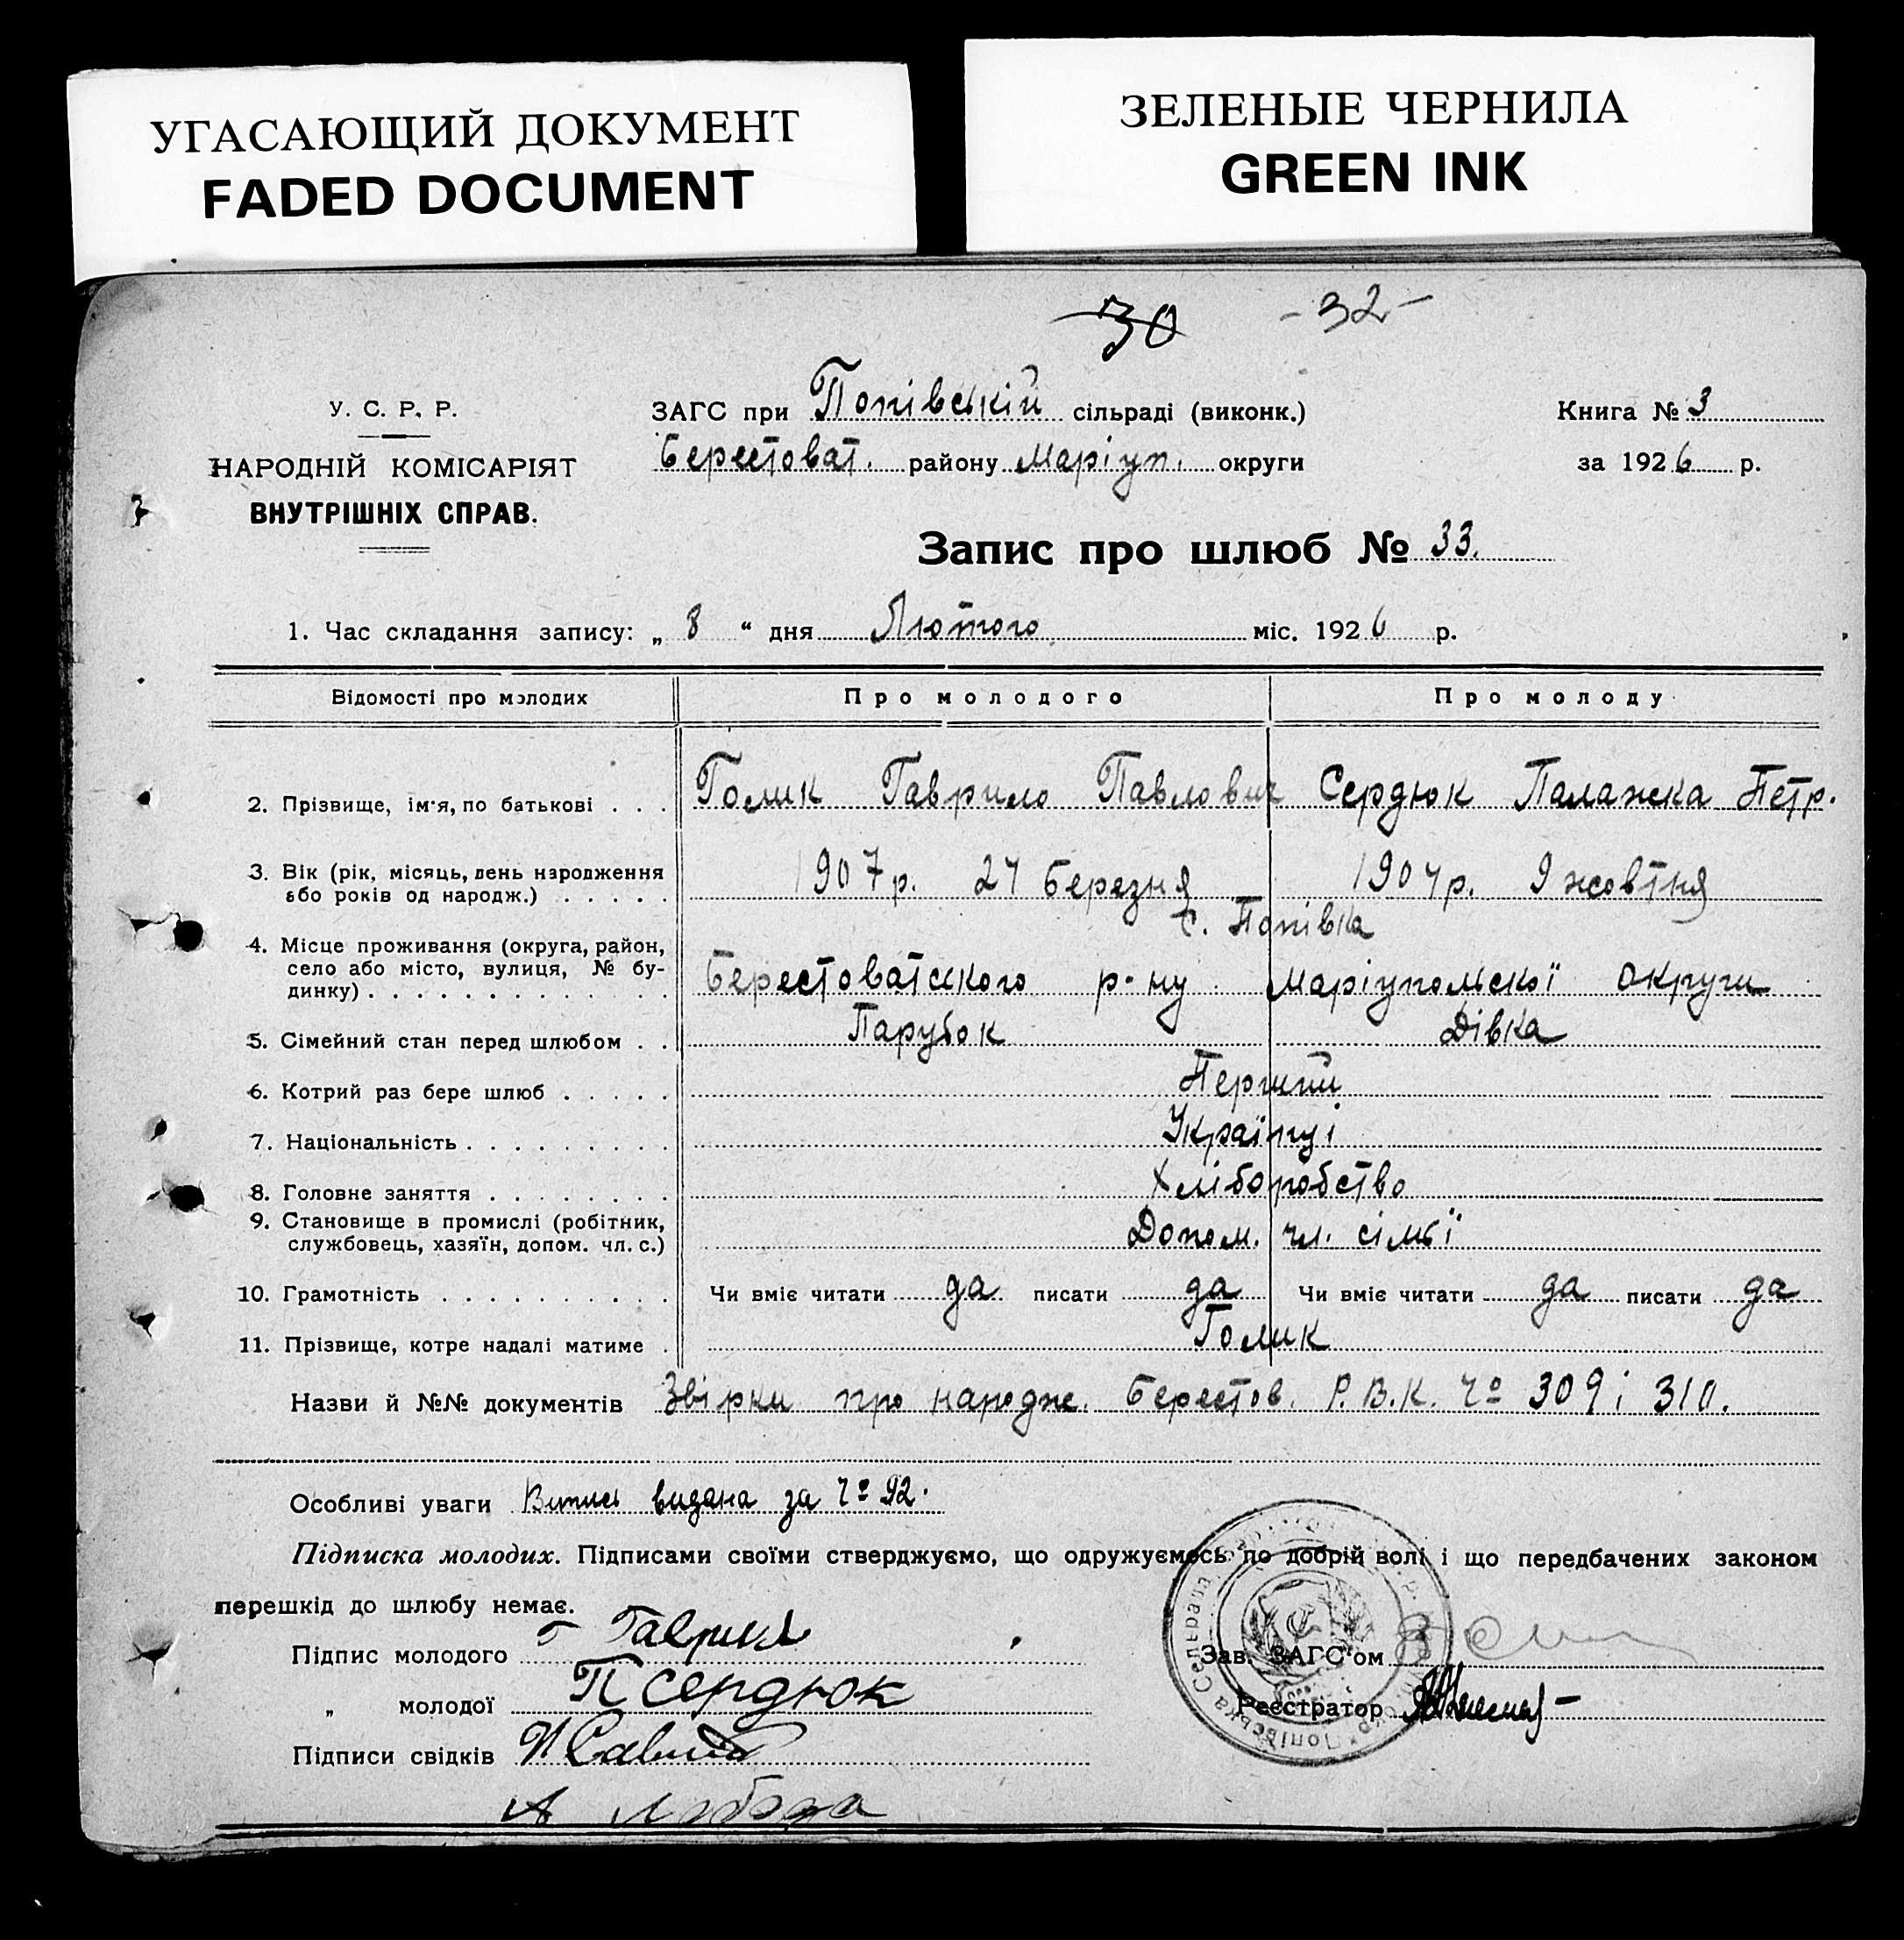 УГАСАЮЩИЙ ДОКУМЕНТ
FADED DOCUMENT
ЗЕЛЕНЫЕ ЧЕРНИЛА
GREEN INK
30 - 32 -
У. С. Р. Р.
НАРОДНІЙ КОМІСАРІЯТ
ВНУТРІШНІХ СПРАВ.
ЗАГС при Попівській сільраді (виконк.)
Берестоват. району Маріуп. округи
Книга № 3
за 1926 р.
Запис про шлюб № 33.
1. Час складання запису: „ 8 “ дня Лютого міс. 1926 р.
Відомості про молодих Про молодого Про молоду
2. Прізвище, ім'я, по батькові . . . Голик Гаврило Павлович Сердюк Палажка Петр.
3. Вік (рік, місяць, день народження
або років од народж.) . . . . . 1907 р. 24 Березня 1904 р. 9 жовтня
с. Попівка
4. Місце проживання (округа, район,
село або місто, вулиця, № бу-
динку) . . . . . . . . . . . . Берестоватського р-ну Маріупольскої округи
5. Сімейний стан перед шлюбом . . Парубок Дівка
6. Котрий раз бере шлюб . . . . . Перший
7. Національність . . . . . . . . . Українці
8. Головне заняття . . . . . . . . Хліборобство
9. Становище в промислі (робітник,
службовець, хазяїн, допом. чл. с.) Допом. чл. сімьї
10. Грамотність . . . . . . . . . . Чи вміє читати да писати да Чи вміє читати да писати да
11. Прізвище, котре надалі матиме . Голик
Назви й №№ документів Звірки про народж. Берестов. Р.В.К. Чо 309 і 310.
Особливі уваги Випись видана за Чо 92.
Підписка молодих. Підписами своїми стверджуємо, що одружуємось по добрій волі і що передбачених законом
перешкід до шлюбу немає.
Підпис молодого Г Гаврил
„ молодої П Сердюк
Підписи свідків
А Лобода
Зав. ЗАГС'ом
Реєстратор